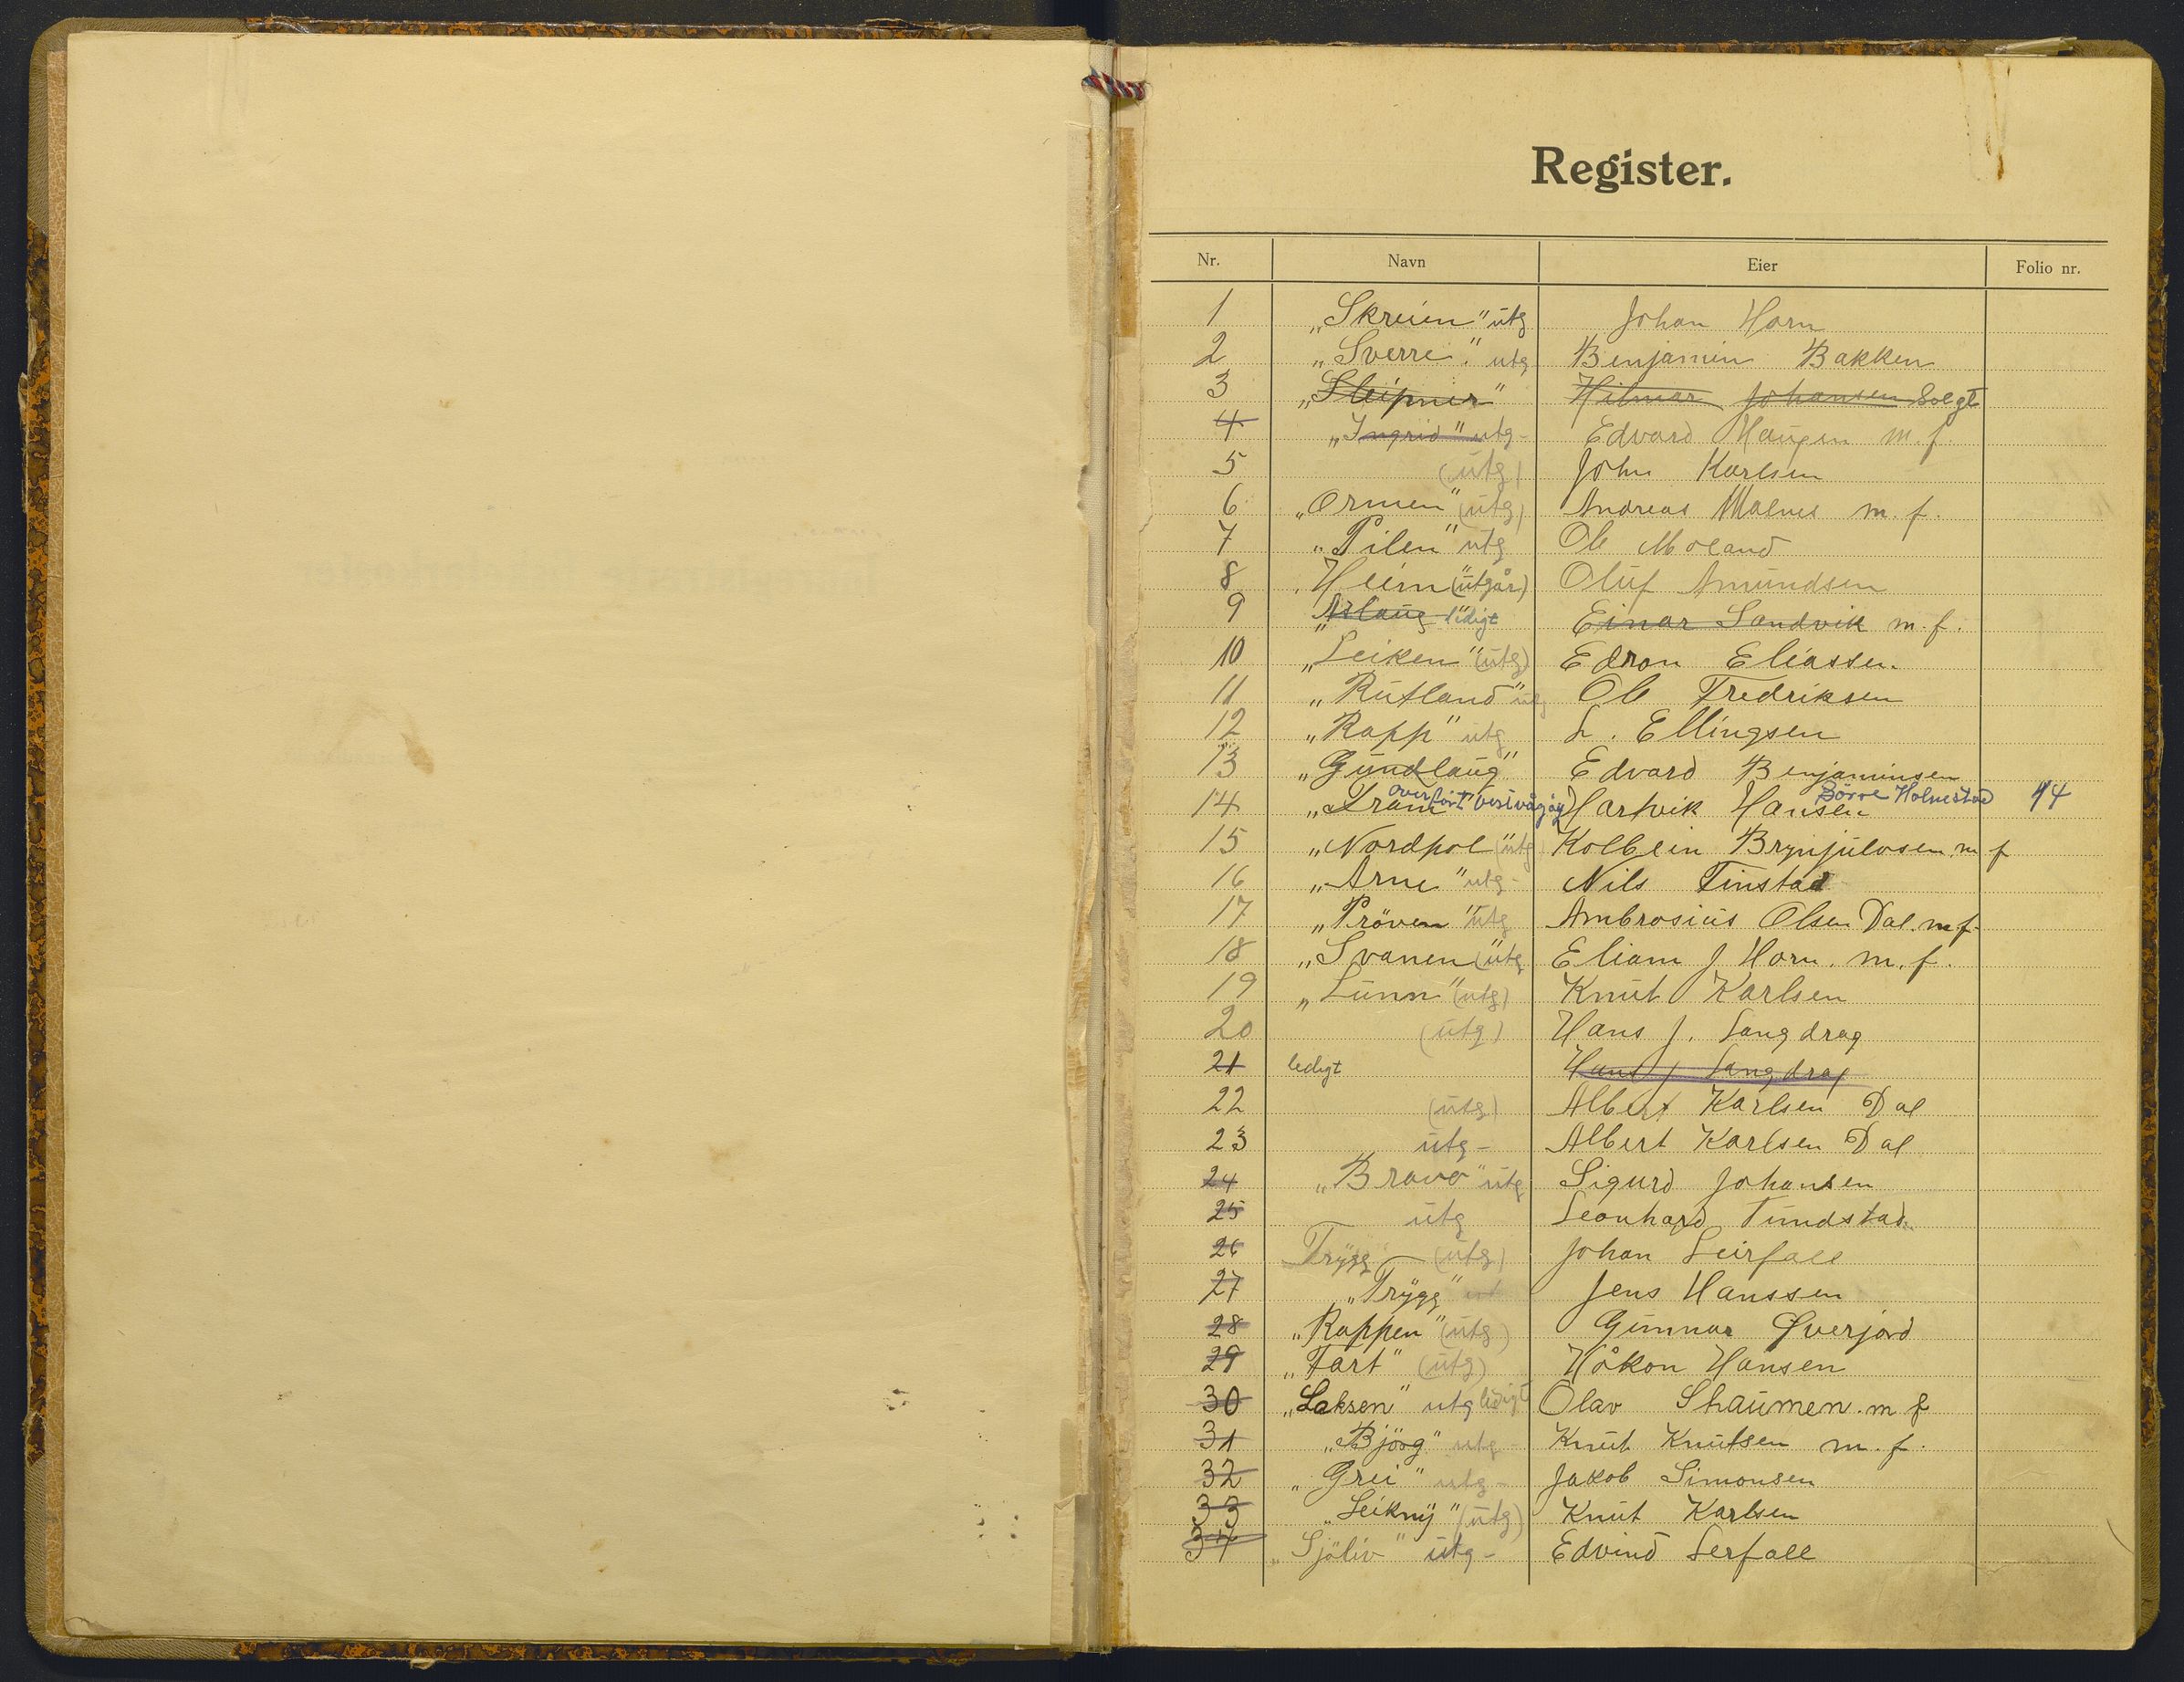 Register.
Nr. Navn Eier Folio nr.
1 „Skreien" utg Johan Horn
2 „Sverre". utg Benjamin Bakken
3 „Sleipner" Hilmar Johansen Solgt
4 „Ingrid" utg- Edvard Haugen m. f.
5 (utg) John Karlsen
6 „Ormen" (utg) Andreas Malnes m. f.
7 „Pilen" utg Ole Moland
8 „Heim" (utgår) Oluf Amundsen
9 „Aslaug ledigt Einar Sandvik m. f.
10 „Leiken" (utg) Edron Eliassen.
11 „Rutland" utg Ole Fredriksen
12 „Rapp" utg L. Ellingsen
13 „Gundlaug" Edvard Benjaminsen
14 „Fram" overført Vestvågøy Hartvik Hansen Börre Holmestad 44
15 „Nordpol" (utg Kolbein Brynjulvsen. m f
16 „Arne" utg- Nils Finstad
17 „Pröven" utg Ambrosius Olsen Dal. m. f.
18 „Svanen" (utg Eliam J Horn. m. f.
19 „Lunn" (utg) Knut Karlsen
20 (utg) Hans J. Langdrag
21 ledigt Hans J Langdrag
22 (utg) Albert Karlsen Dal
23 utg- Albert Karlsen Dal
24 „Bravo" utg Sigurd Johansen
25 utg Leonhard Tundstad
26 Trygg (utg) Johan Leirfall
27 „Trygg" utg Jens Hanssen
28 „Rappen" (utg) Gunnar Øverjord
29 „Fart" (utg) Håkon Hansen
30 „Laksen" utg ledigt Olav Shaumen. m f
31 „Bjørg" utg- Knut Knutsen m. f.
32 „Grei" utg- Jakob Simonsen
33 „Leikny" (utg) Knut Karlsen
34 „Sjöliv" utg- Edvind Lerfall